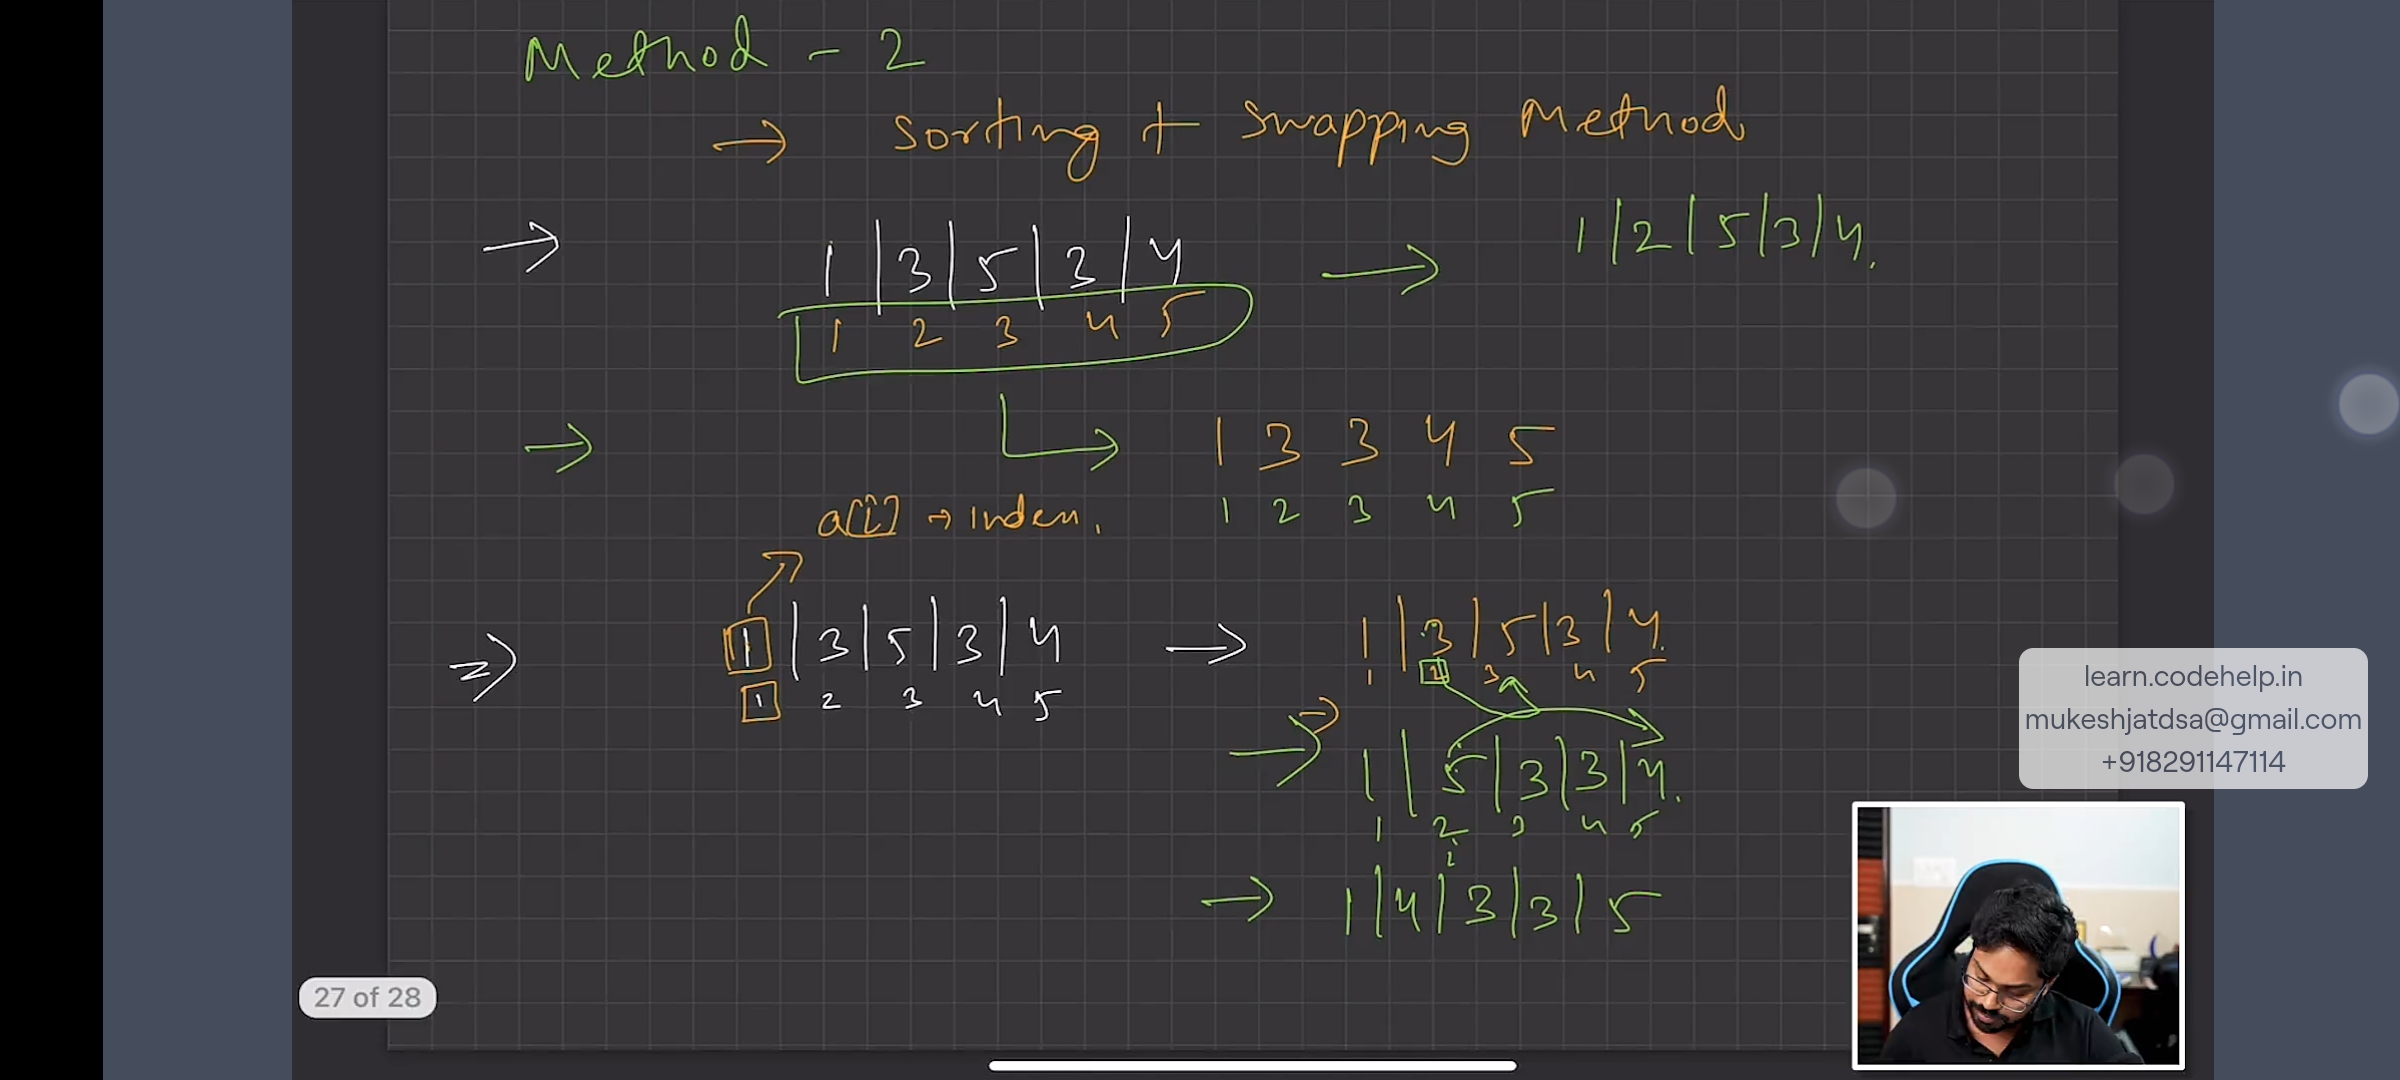 Method - 2
→ Sorting + Swapping Method
→ 1 | 3 | 5 | 3 | 4 → 1 | 2 | 5 | 3 | 4.
1 2 3 4 5
→ → 1 3 3 4 5
a[i] → index. 1 2 3 4 5
1 | 3 | 5 | 3 | 4 → 1 | 3 | 5 | 3 | 4.
1 2 3 4 5 1 2 3 4 5
→ 1 | 5 | 3 | 3 | 4.
1 2 3 4 5
i
→ 1 | 4 | 3 | 3 | 5
learn.codehelp.in
mukeshjatdsa@gmail.com
+918291147114
27 of 28